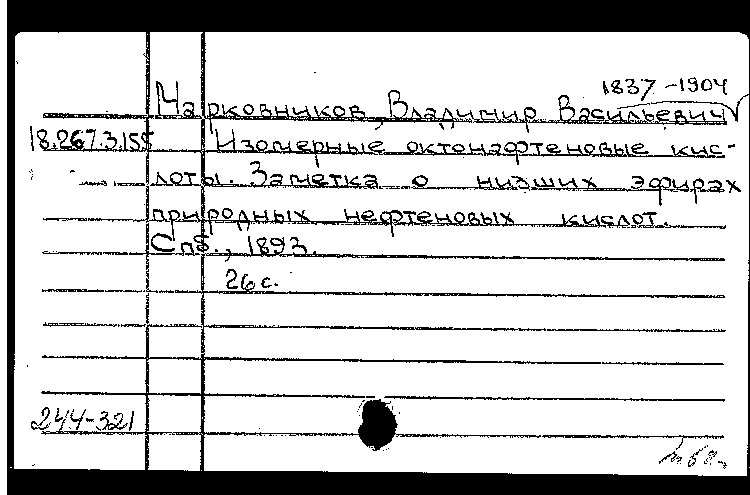 1837-1904
Марковников, Владимир Васильевич
18.267.3.155 Изомерные октонафтеновые кис-
лоты. Заметка о низших эфирах
природных нефтеновых кислот.
Спб., 1893.
26 с.
244-321